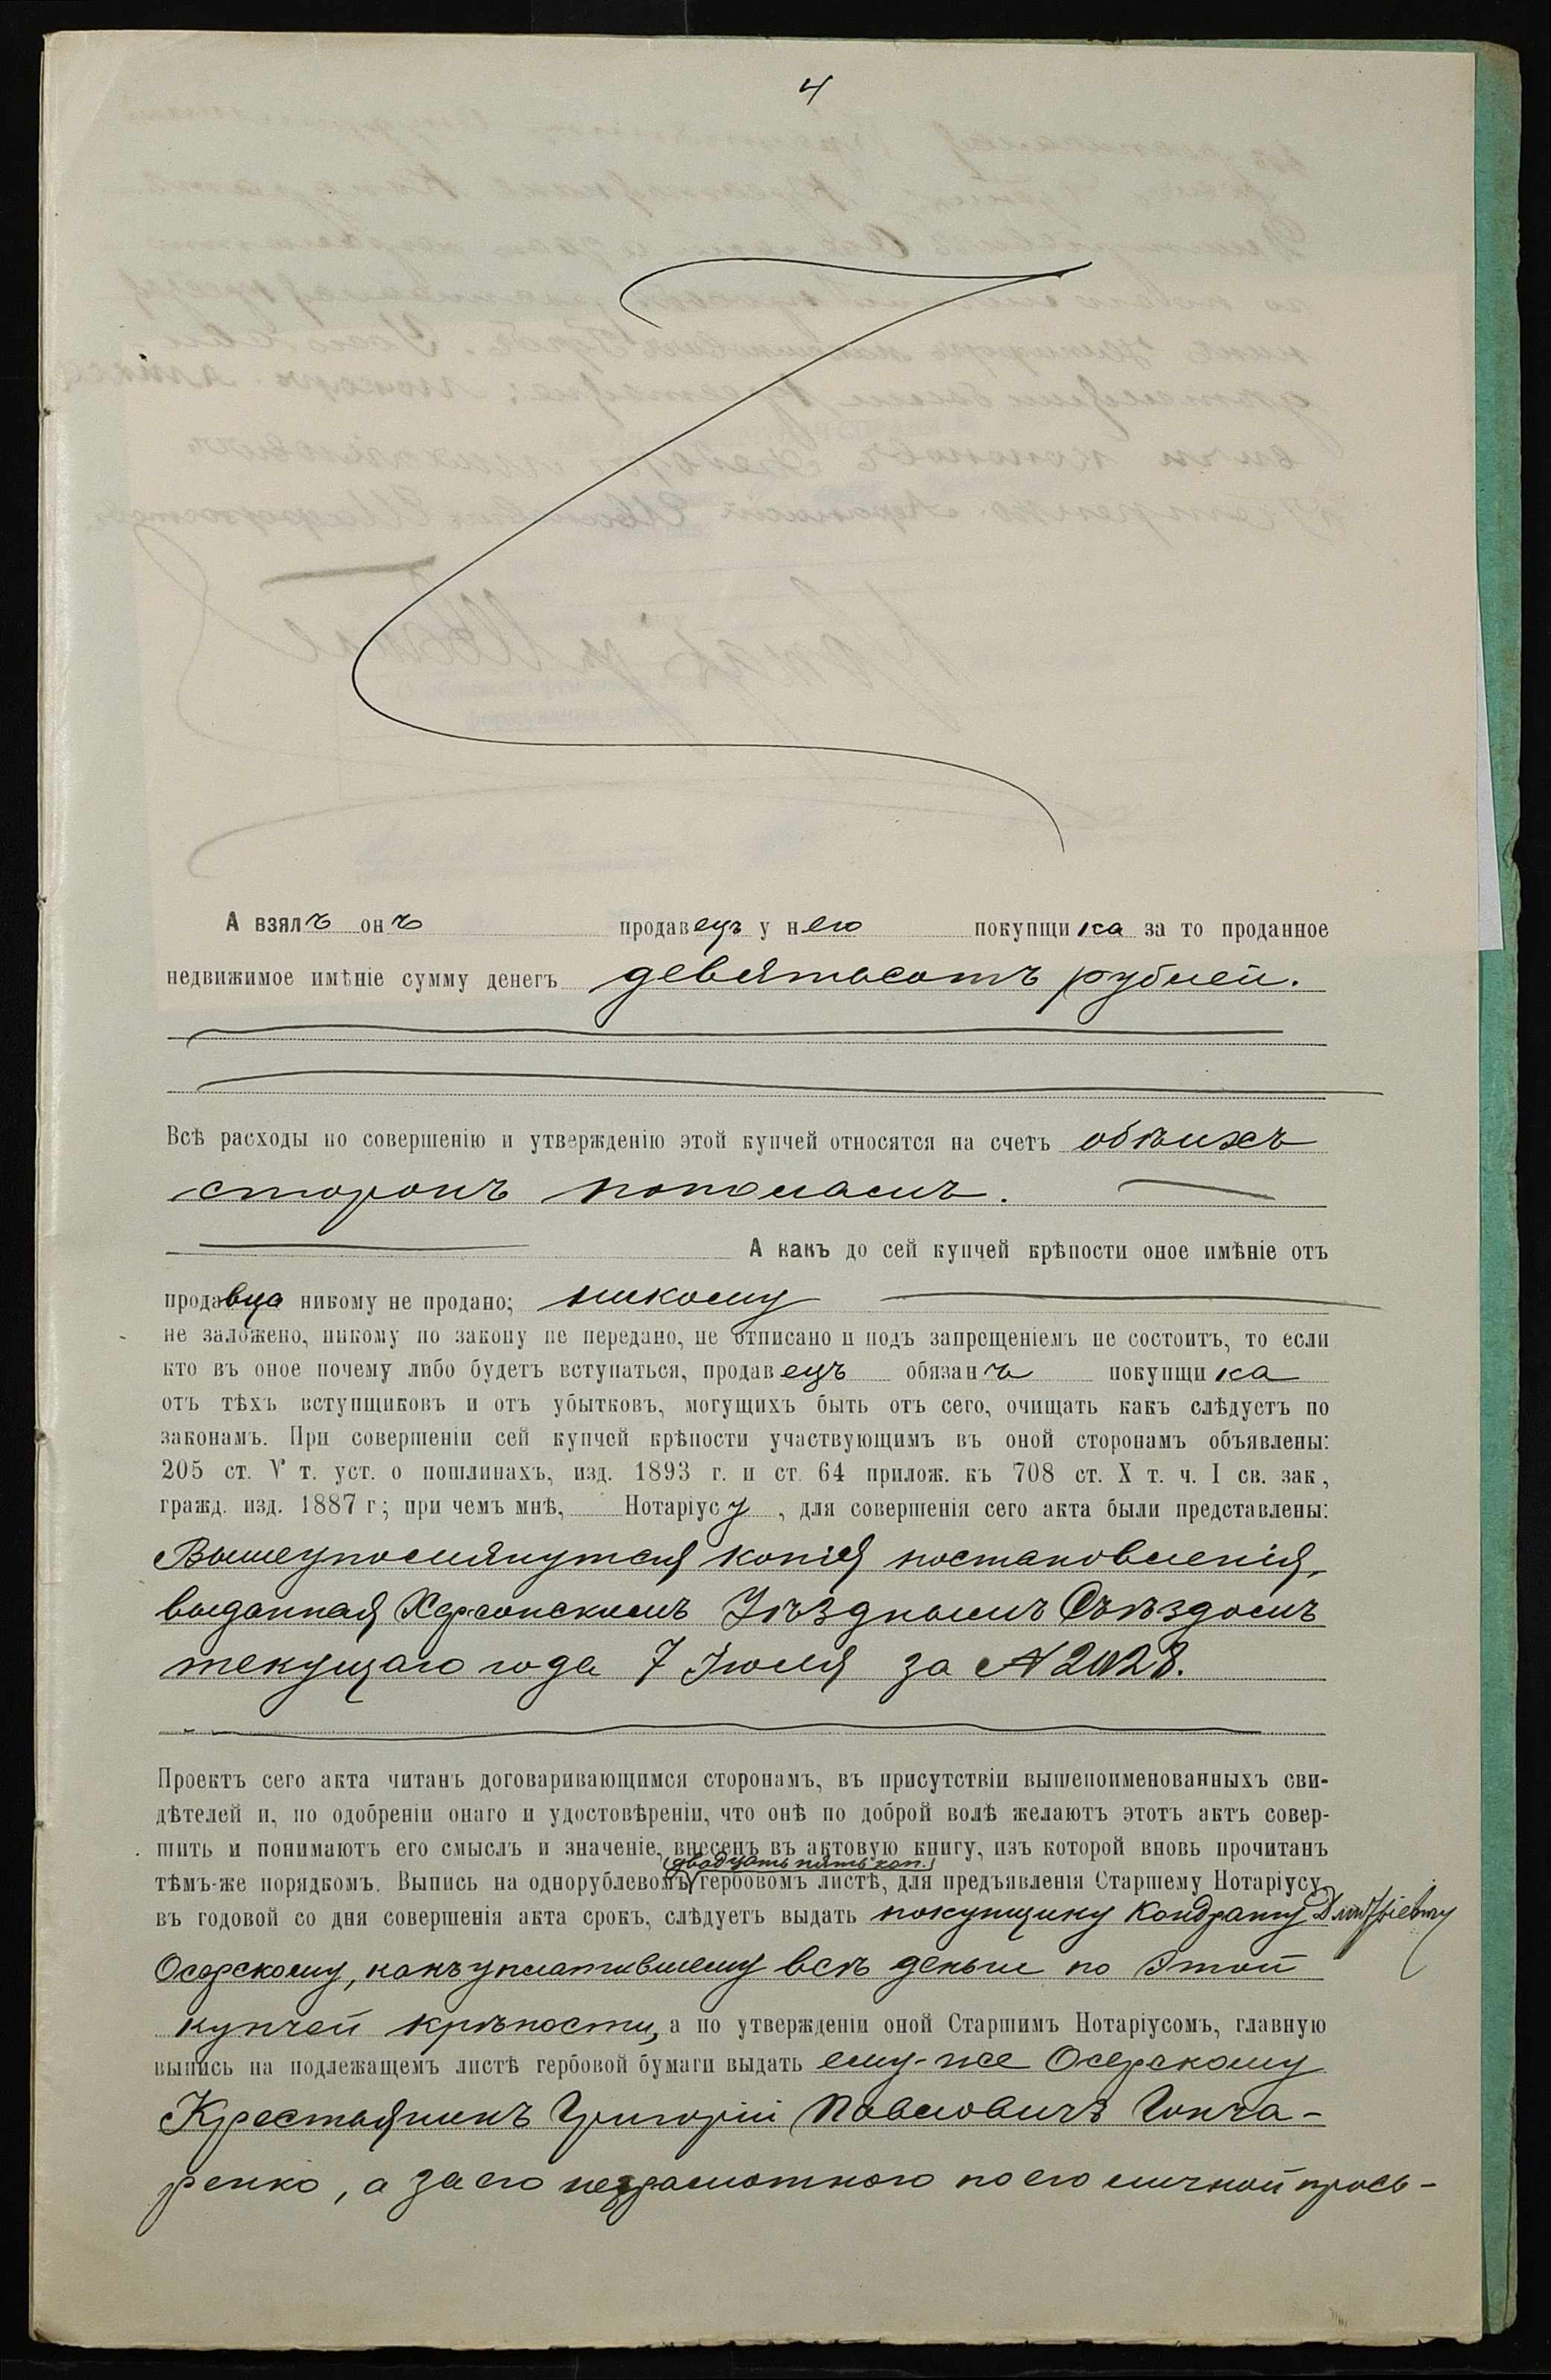 4
А взялъ онъ продавецъ у него покупщика за то проданное
недвижимое имѣніе сумму денегъ девятьсотъ рублей.
Всѣ расходы по совершенію и утвержденію этой купчей относятся на счетъ обѣихъ
сторонъ пополамъ.
А какъ до сей купчей крѣпости оное имѣніе отъ
продавца никому не продано; никому
не заложено, никому по закону не передано, не отписано и подъ запрещеніемъ не состоитъ, то если
кто въ оное почему либо будетъ вступаться, продавецъ обязанъ покупщика
отъ тѣхъ вступщиковъ и отъ убытковъ, могущихъ быть отъ сего, очищать какъ слѣдуетъ по
законамъ. При совершеніи сей купчей крѣпости участвующимъ въ оной сторонамъ объявлены:
205 ст. V т. уст. о пошлинахъ, изд. 1893 г. и ст. 64 прилож. къ 708 ст. X т. ч. I св. зак,
гражд. изд. 1887 г; при чемъ мнѣ, Нотаріусу, для совершенія сего акта были представлены:
Вышеупомянутая копія постановленія,
выданная Херсонскимъ Уѣзднымъ Съѣздомъ
текущаго года 7 Іюля за №2028.
Проектъ сего акта читанъ договаривающимся сторонамъ, въ присутствіи вышепоименованныхъ сви-
дѣтелей и, по одобреніи онаго и удостовѣреніи, что онѣ по доброй волѣ желаютъ этотъ актъ совер-
шить и понимаютъ его смыслъ и значеніе, внесенъ въ актовую книгу, изъ которой вновь прочитанъ
(двадцать пять коп.)
тѣмъ-же порядкомъ. Выпись на однорублевомъ гербовомъ листѣ, для предъявленія Старшему Нотаріусу
въ годовой со дня совершенія акта срокъ, слѣдуетъ выдать покупщику Кондрату Дмитріевичу
Осерскому, какъ уплатившему всѣ деньги по этой
купчей крѣпости, а по утвержденіи оной Старшимъ Нотаріусомъ, главную
выпись на подлежащемъ листѣ гербовой бумаги выдать ему-же Осерскому
Крестьянинъ Григорій Павловичъ Гонча-
ренко, а за его неграмотного по его личной прось-